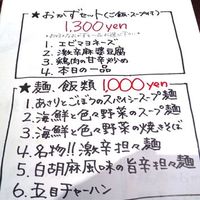 ★おかずセット(ご飯・スープ付)
1,300yen
1. エビマヨネーズ
2. 激辛麻婆豆腐
3. 鶏肉の甘辛炒め
4. 本日の一品
★麺、飯類 1,000yen
1. あさりとごぼうのスパイシースープ麺
2. 海鮮と色々野菜のスープ麺
3. 海鮮と色々野菜の焼きそば
4. 名物!!激辛担々麺
5. 白胡麻風味の旨辛担々麺
6. 五目チャーハン